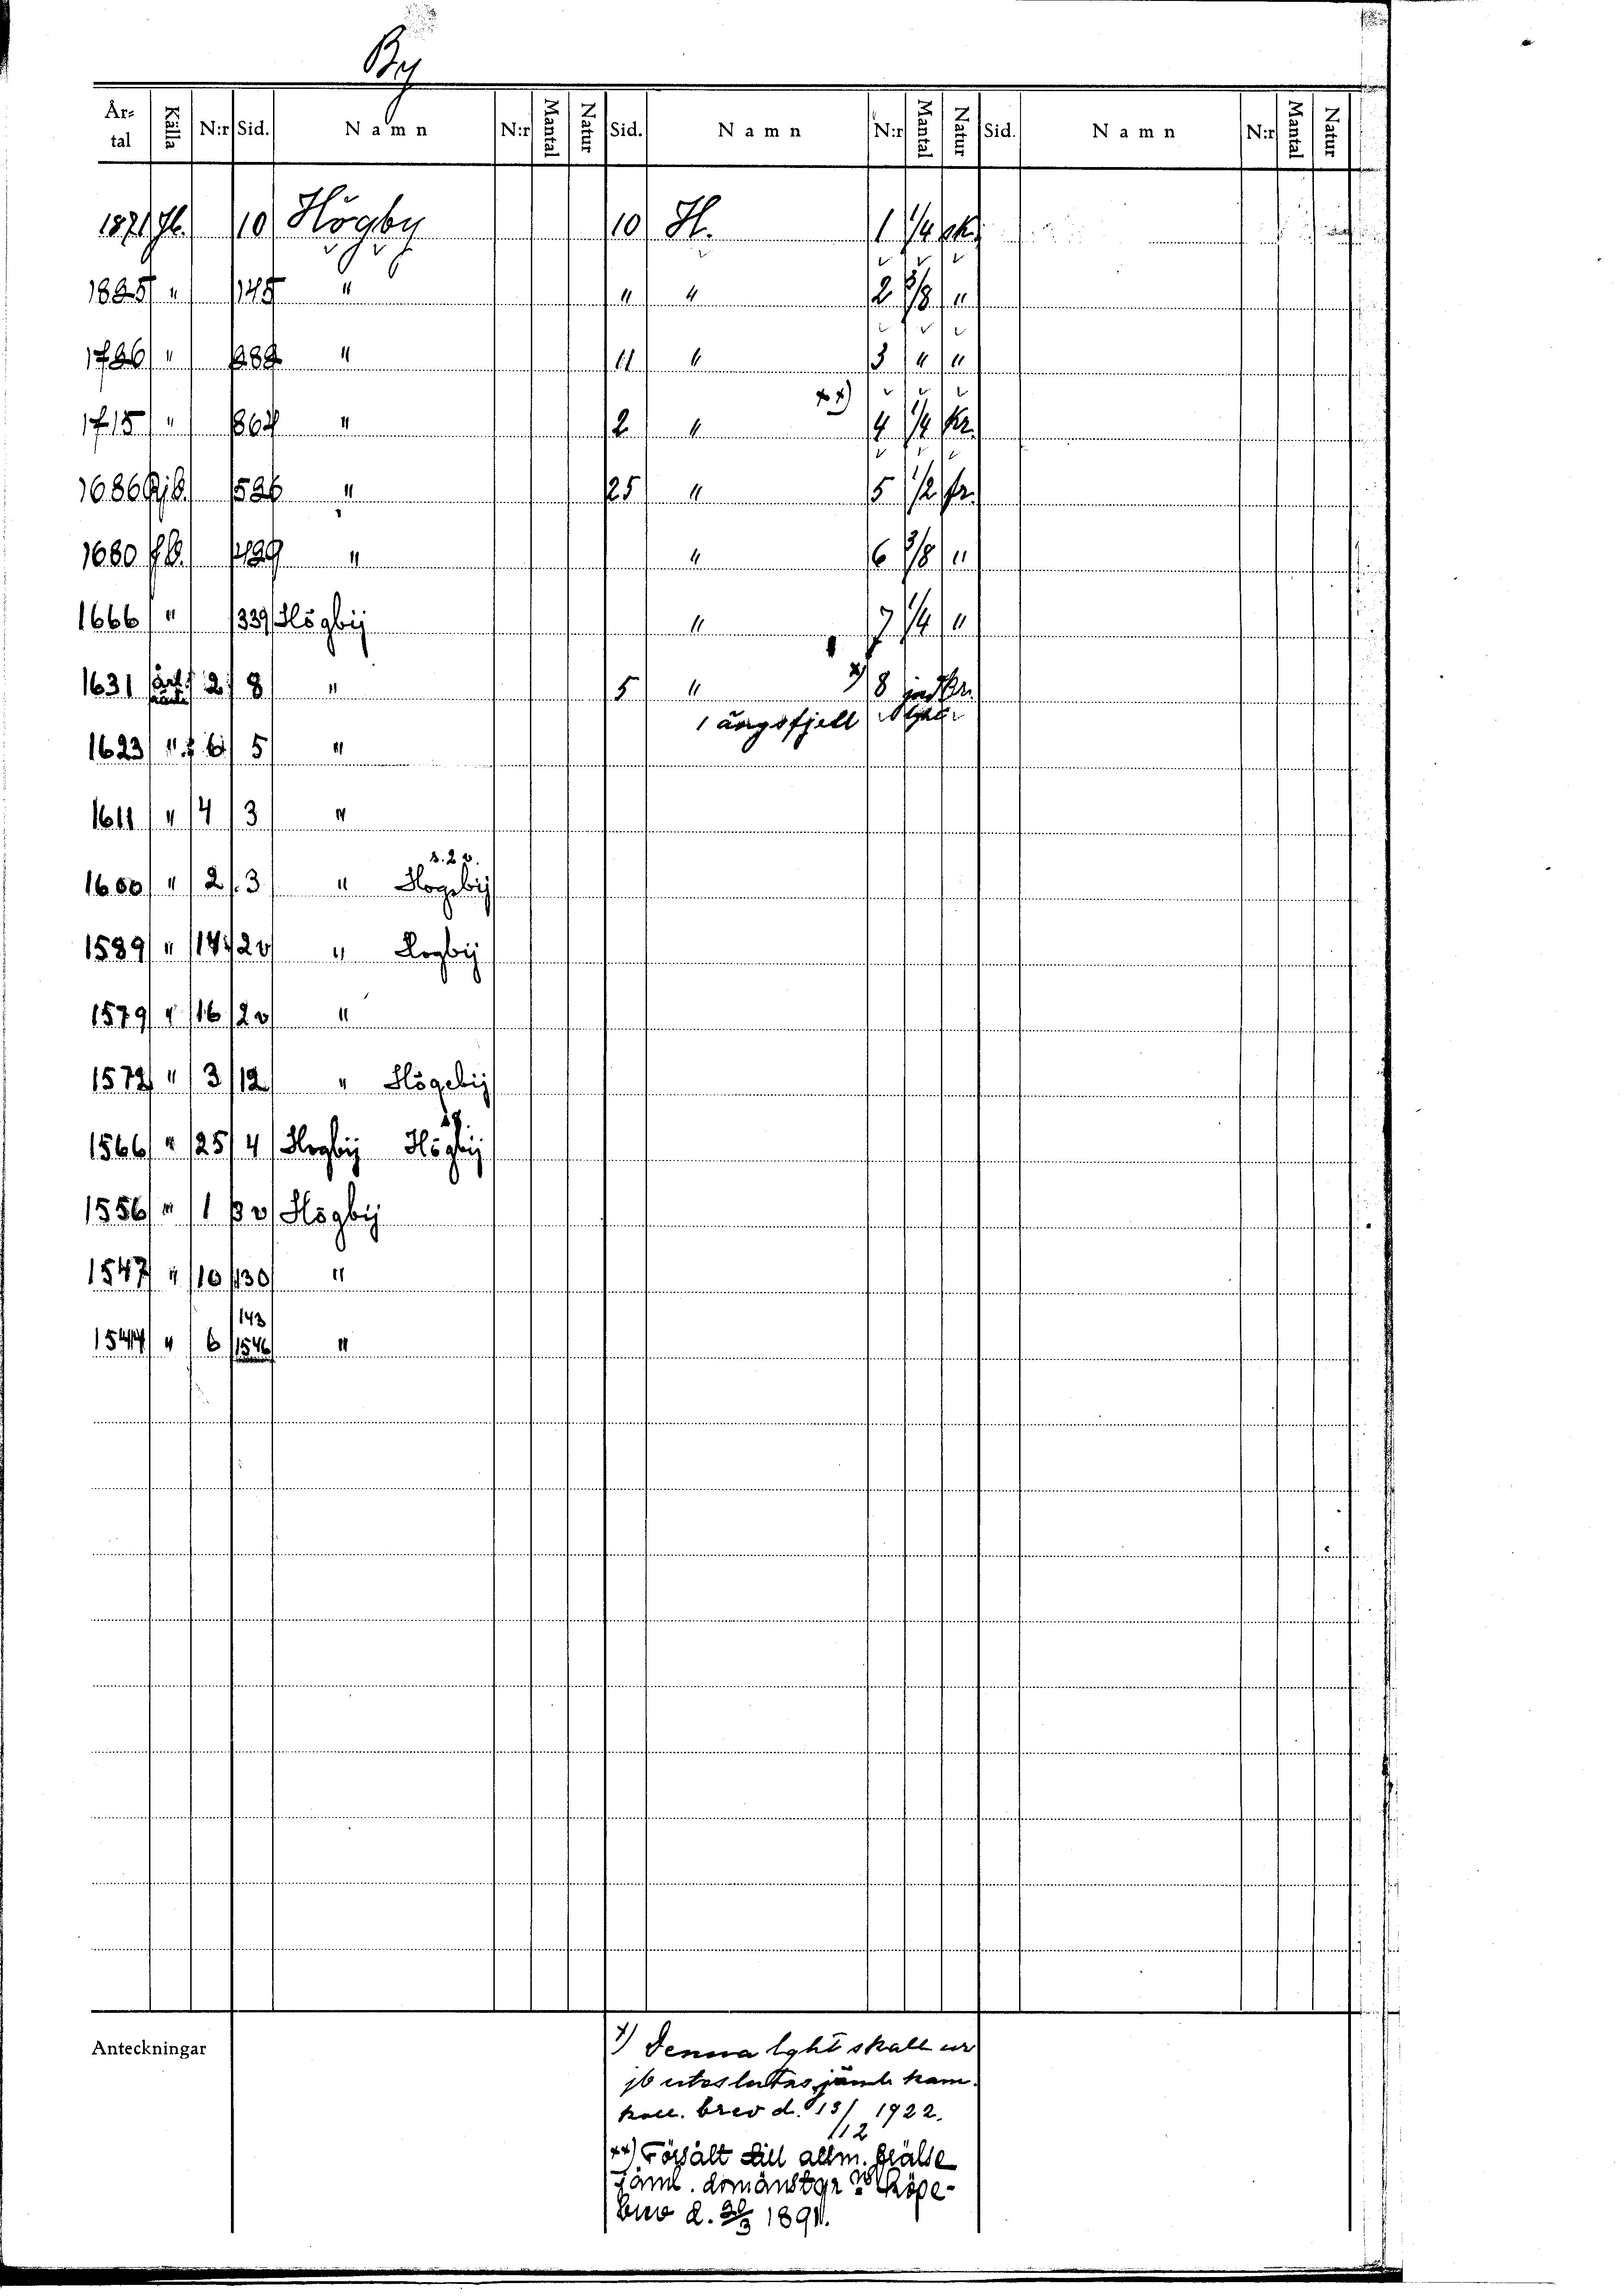 By
År-tal Källa N:r Sid. Namn N:r Mantal Natur Sid. Namn N:r Mantal Natur Sid. Namn N:r Mantal Natur
1871 Jb. 10 Högby 10 H. 1 1/4 sk.
1825 " 145 " " " 2 3/8 "
1726 " 282 " 11 " 3 " "
1715 " 864 " 2 " xx) 4 1/4 kr.
1686 526 " 25 " 5 1/2 fr.
1680 429 " " 6 3/8 "
1666 " 339 Högbij " 7 1/4 "
1631 2 8 " 5 " x) 8 jord
1 ängsfjell
1623 " 6 5 "
1611 " 4 3 "
s. 2 v.
1600 " 2 3 " Hogsbij
1589 " 14 2v " Hogbij
1579 " 16 2v "
1572 " 3 12 " Högebij
1566 " 25 4 Hogbij Högbij
1556 " 1 3v Högbij
1547 " 10 130 "
143
1544 " 6 1546 "
Anteckningar
x) Denna lght skall ur
jb uteslutas jäml. kam.
koll. brev d. 13/12 1922.
xx) Försålt till allm. frälse
jäml. domänstyr:s köpe-
brev d.